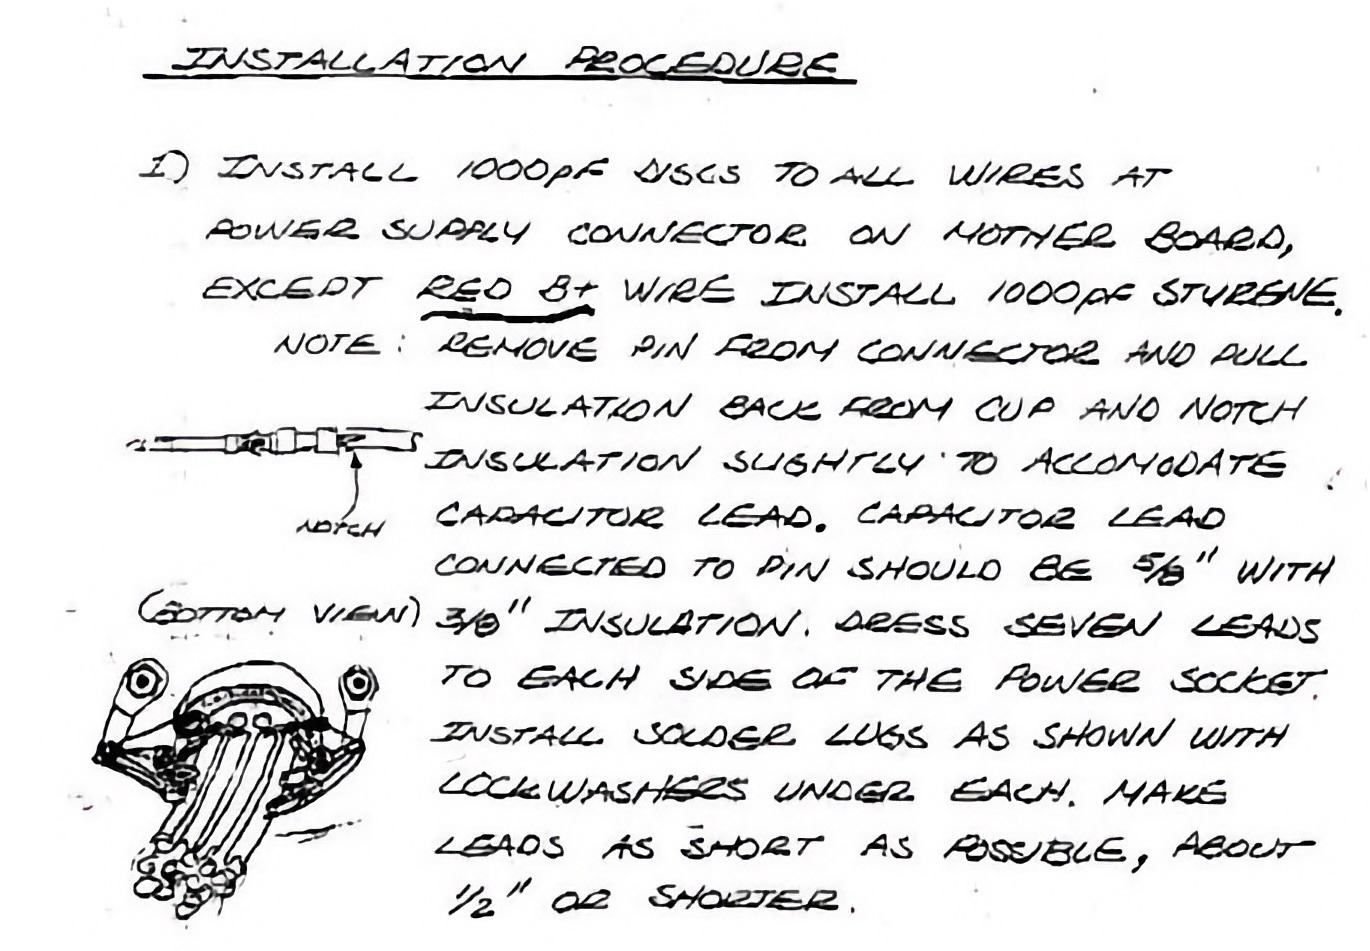 INSTALLATION PROCEDURE
1) INSTALL 1000pF DISCS TO ALL WIRES AT
POWER SUPPLY CONNECTOR ON MOTHER BOARD,
EXCEPT RED B+ WIRE INSTALL 1000pF STYRENE.
NOTE: REMOVE PIN FROM CONNECTOR AND PULL
INSULATION BACK FROM CUP AND NOTCH
INSULATION SLIGHTLY TO ACCOMODATE
NOTCH
CAPACITOR LEAD. CAPACITOR LEAD
CONNECTED TO PIN SHOULD BE 5/8" WITH
(BOTTOM VIEW)
3/8" INSULATION. DRESS SEVEN LEADS
TO EACH SIDE OF THE POWER SOCKET.
INSTALL SOLDER LUGS AS SHOWN WITH
LOCKWASHERS UNDER EACH. MAKE
LEADS AS SHORT AS POSSIBLE, ABOUT
1/2" OR SHORTER.